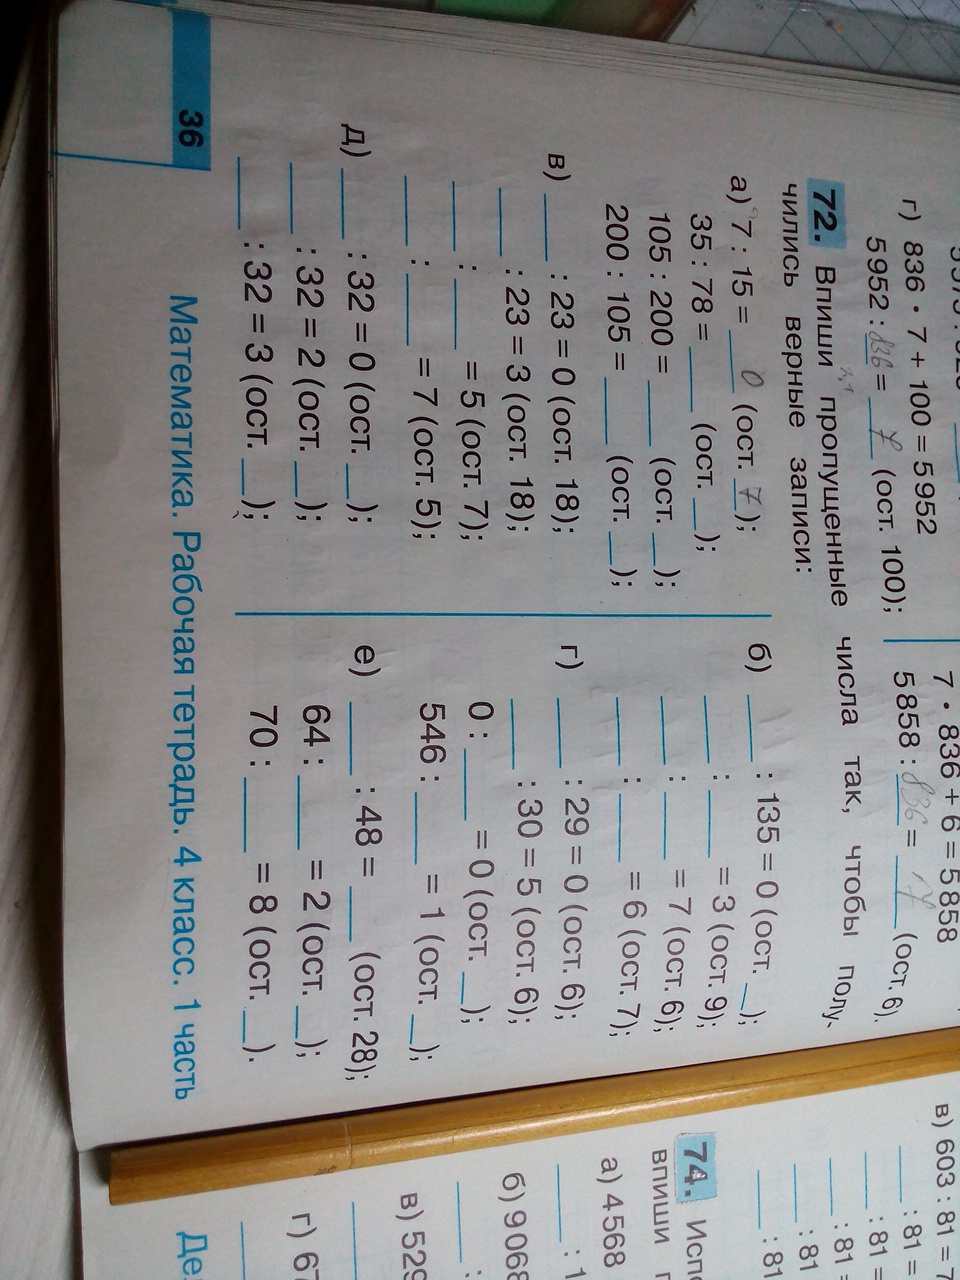 г) 836 · 7 + 100 = 5952
5952 : 836 = 7 (ост. 100);
7 · 836 + 6 = 5858
5858 : 836 = 7 (ост. 6).
72. Впиши пропущенные числа так, чтобы полу-
чились верные записи:
а) 7 : 15 = 0 (ост. 7);
35 : 78 = ___ (ост. __);
105 : 200 = ___ (ост. __);
200 : 105 = ___ (ост. __);
б) ___ : 135 = 0 (ост. __);
___ : ___ = 3 (ост. 9);
___ : ___ = 7 (ост. 6);
___ : ___ = 6 (ост. 7);
в) ___ : 23 = 0 (ост. 18);
___ : 23 = 3 (ост. 18);
___ : ___ = 5 (ост. 7);
___ : ___ = 7 (ост. 5);
г) ___ : 29 = 0 (ост. 6);
___ : 30 = 5 (ост. 6);
0 : ___ = 0 (ост. __);
546 : ___ = 1 (ост. __);
д) ___ : 32 = 0 (ост. __);
___ : 32 = 2 (ост. __);
___ : 32 = 3 (ост. __);
е) ___ : 48 = ___ (ост. 28);
64 : ___ = 2 (ост. __);
70 : ___ = 8 (ост. __).
36
Математика. Рабочая тетрадь. 4 класс. 1 часть
в) 603 : 81 = 7
___ : 81 =
___ : 81 =
___ : 81
___ : 81
74.
впиши
а) 4568
б) 9068
в) 529
г) 67